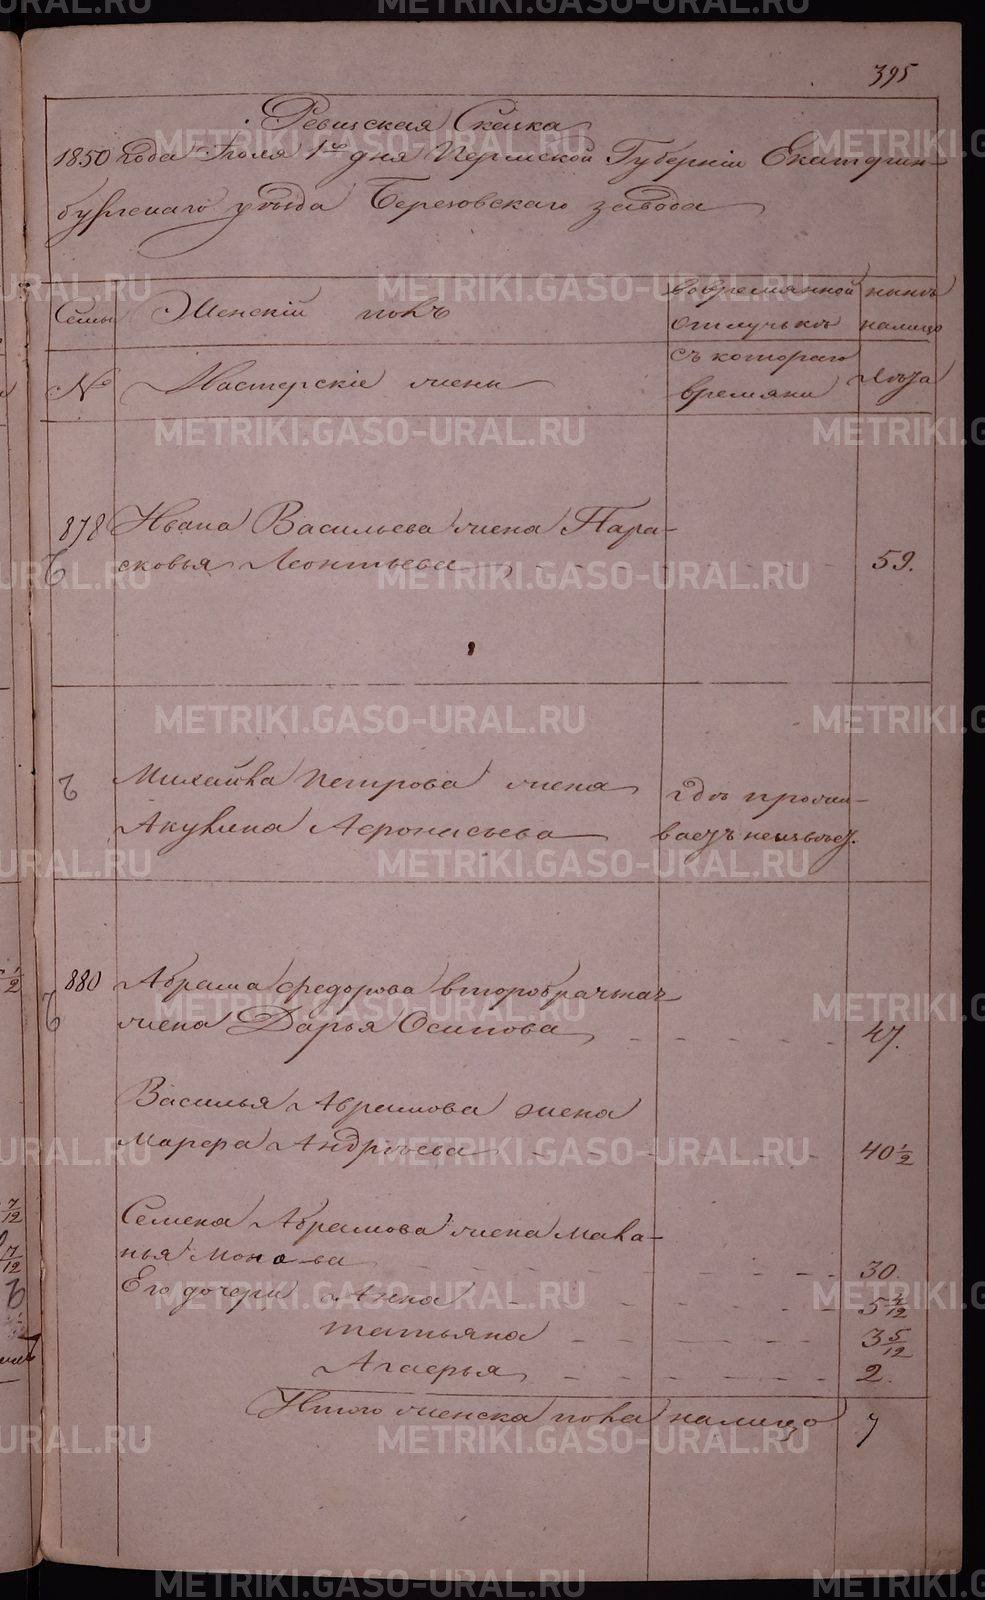 395
Ревизская Скаска
1850 года Июля 1го дня Пермской Губерніи Екатерин-
бургскаго уѣзда Березовскаго завода
Семьи
Женскій полъ
во времянной отлучькѣ
нынѣ налицо
№
Мастерскіе жены
съ котораго времяни
Лѣта
878 Ивана Васильева жена Пара-
сковья Леонтьева 59.
Михайла Петрова жена
Акулина Афонасьева
гдѣ прожи-
ваетъ неизвѣст.
880 Абрама Федорова второбрачная
жена Дарья Осипова 47.
Василья Абрамова жена
Марфа Андрѣева 40 1/2
Семена Абрамова жена Мала-
нья 30.
Его дочери Анна 5 4/12
Татьяна 3 5/12
Агафья 2.
Итого женска пола налицо 7
METRIKI.GASO-URAL.RU